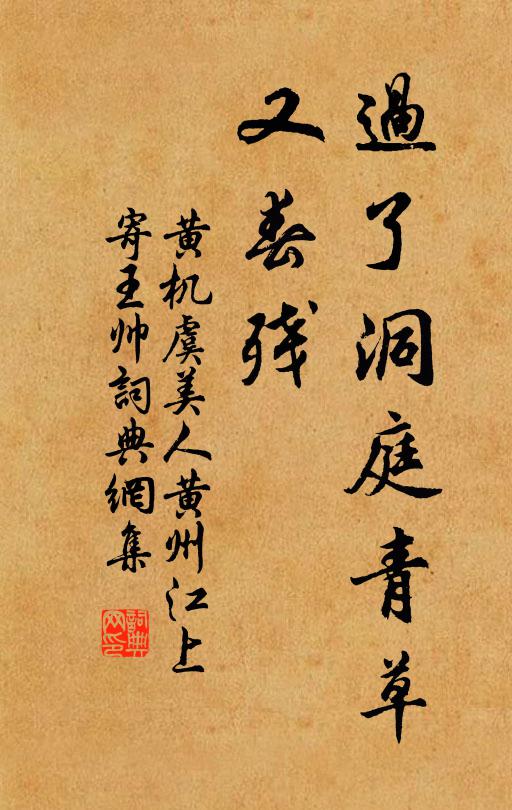 過了洞庭青草
又春残
黄机虞美人黄州江上
寄王帅詞典網集
詞典
网印